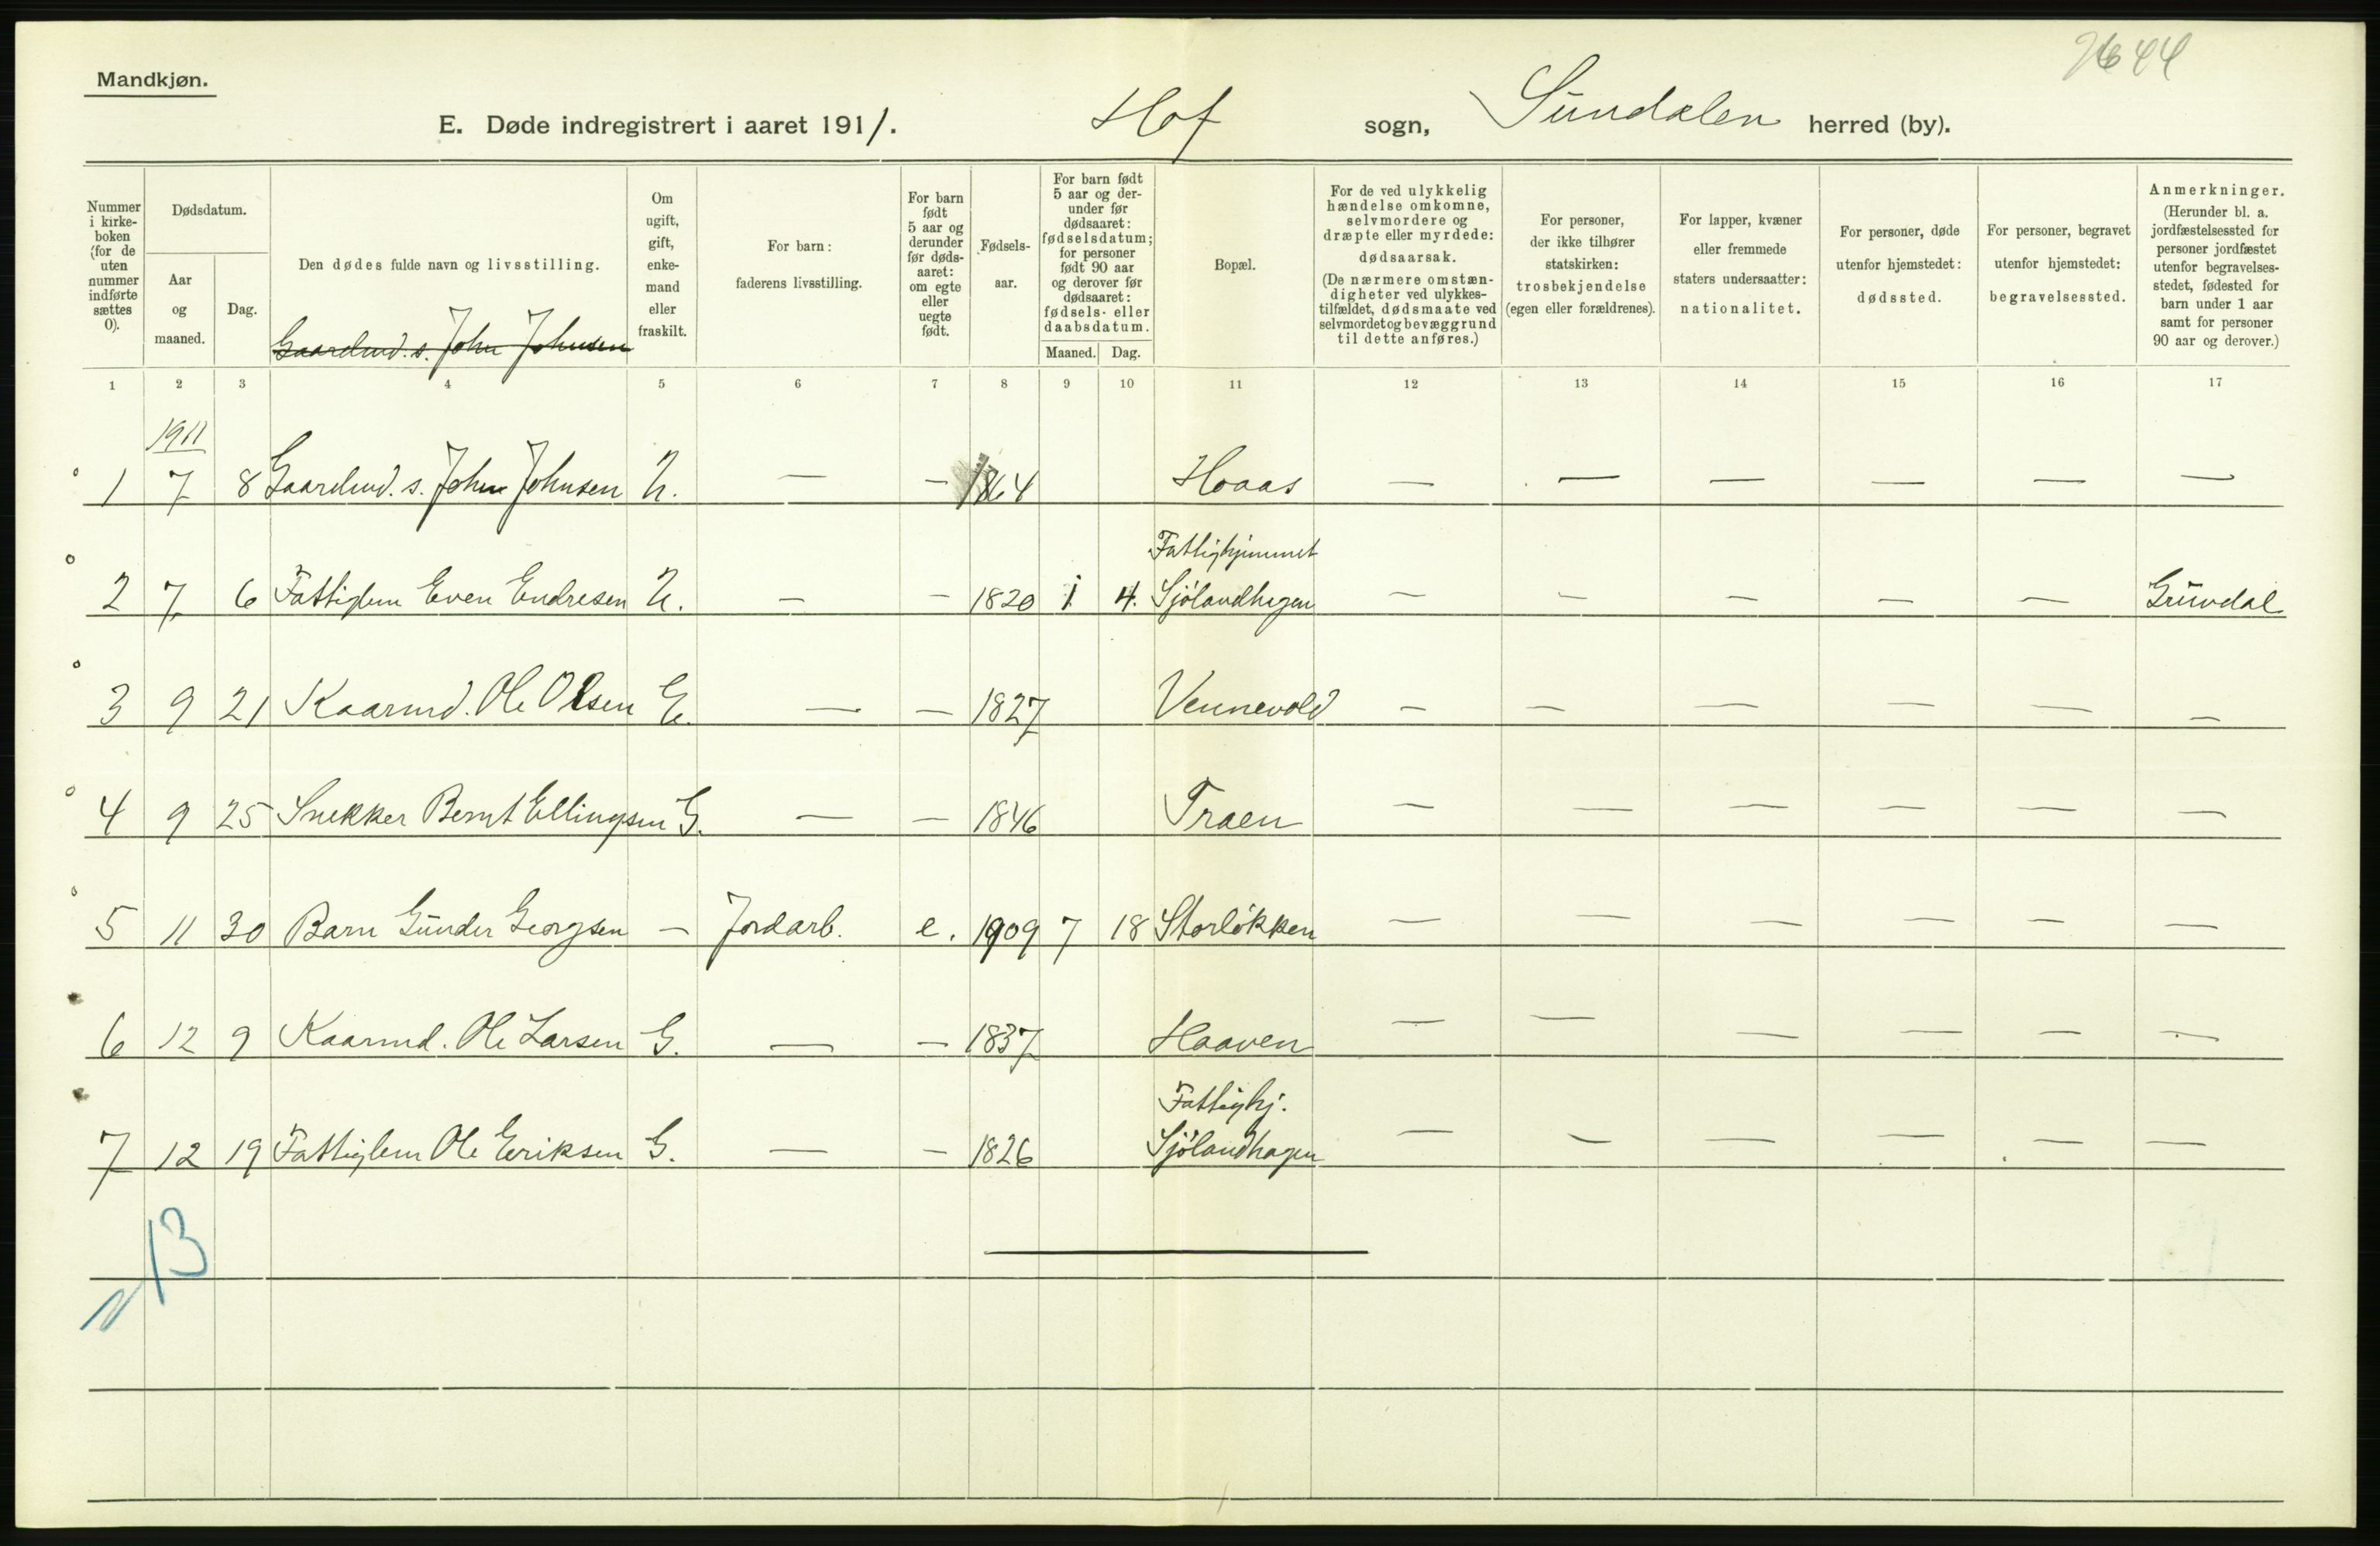 Mandkjøn.
2644
E. Døde indregistrert i aaret 1911. Hof sogn, Sundalen herred (by).
Nummer i kirke- boken (for de uten nummer indførte sættes 0).
Dødsdatum.
Aar og maaned.
Dag.
Den dødes fulde navn og livsstilling.
Gaardmd. s. John Johnsen
Om ugift, gift, enke- mand eller fraskilt.
For barn: faderens livsstilling.
For barn født 5 aar og derunder før døds- aaret: om egte eller uegte født.
Fødsels- aar.
For barn født 5 aar og der- under før dødsaaret: fødselsdatum; for personer født 90 aar og derover før dødsaaret: fødsels- eller daabsdatum.
Maaned. Dag.
Bopæl.
For de ved ulykkelig hændelse omkomne, selvmordere og dræpte eller myrdede: dødsaarsak. (De nærmere omstæn- digheter ved ulykkes- tilfældet, dødsmaate ved selvmord et og bevæggrund til dette anføres.)
For personer, der ikke tilhører statskirken: trosbekjendelse (egen eller forældrenes).
For lapper, kvæner eller fremmede staters undersaatter: nationalitet.
For personer, døde utenfor hjemstedet: dødssted.
For personer, begravet utenfor hjemstedet: begravelsessted.
Anmerkninger. (Herunder bl. a. jordfæstelsessted for personer jordfæstet utenfor begravelses- stedet, fødested for barn under 1 aar samt for personer 90 aar og derover.)
1 2 3 4 5 6 7 8 9 10 11 12 13 14 15 16 17
1911
1 7 8 Gaardmd. s. John Johnsen U. — — 1864 Hoaas — — — — — —
Fattighjemmet
2 7 6 Fattiglem Even Endresen U. — — 1820 1 4. Sjölandhagen — — — — — Grüvdal
3 9 21 Kaarmd. Ole Olsen E. — — 1827 Vennevold — — — — — —
4 9 25 Snekker Bernt Ellingsen G. — — 1846 Traen — — — — — —
5 11 30 Barn Gunder Georgsen — Jordarb. e. 1909 7 18 Storløkken — — — — — —
6 12 9 Kaarmd. Ole Larsen G. — — 1837 Haaven — — — — — —
Fattighj.
7 12 19 Fattiglem Ole Eriksen G. — — 1826 Sjölandhagen — — — — — —
13